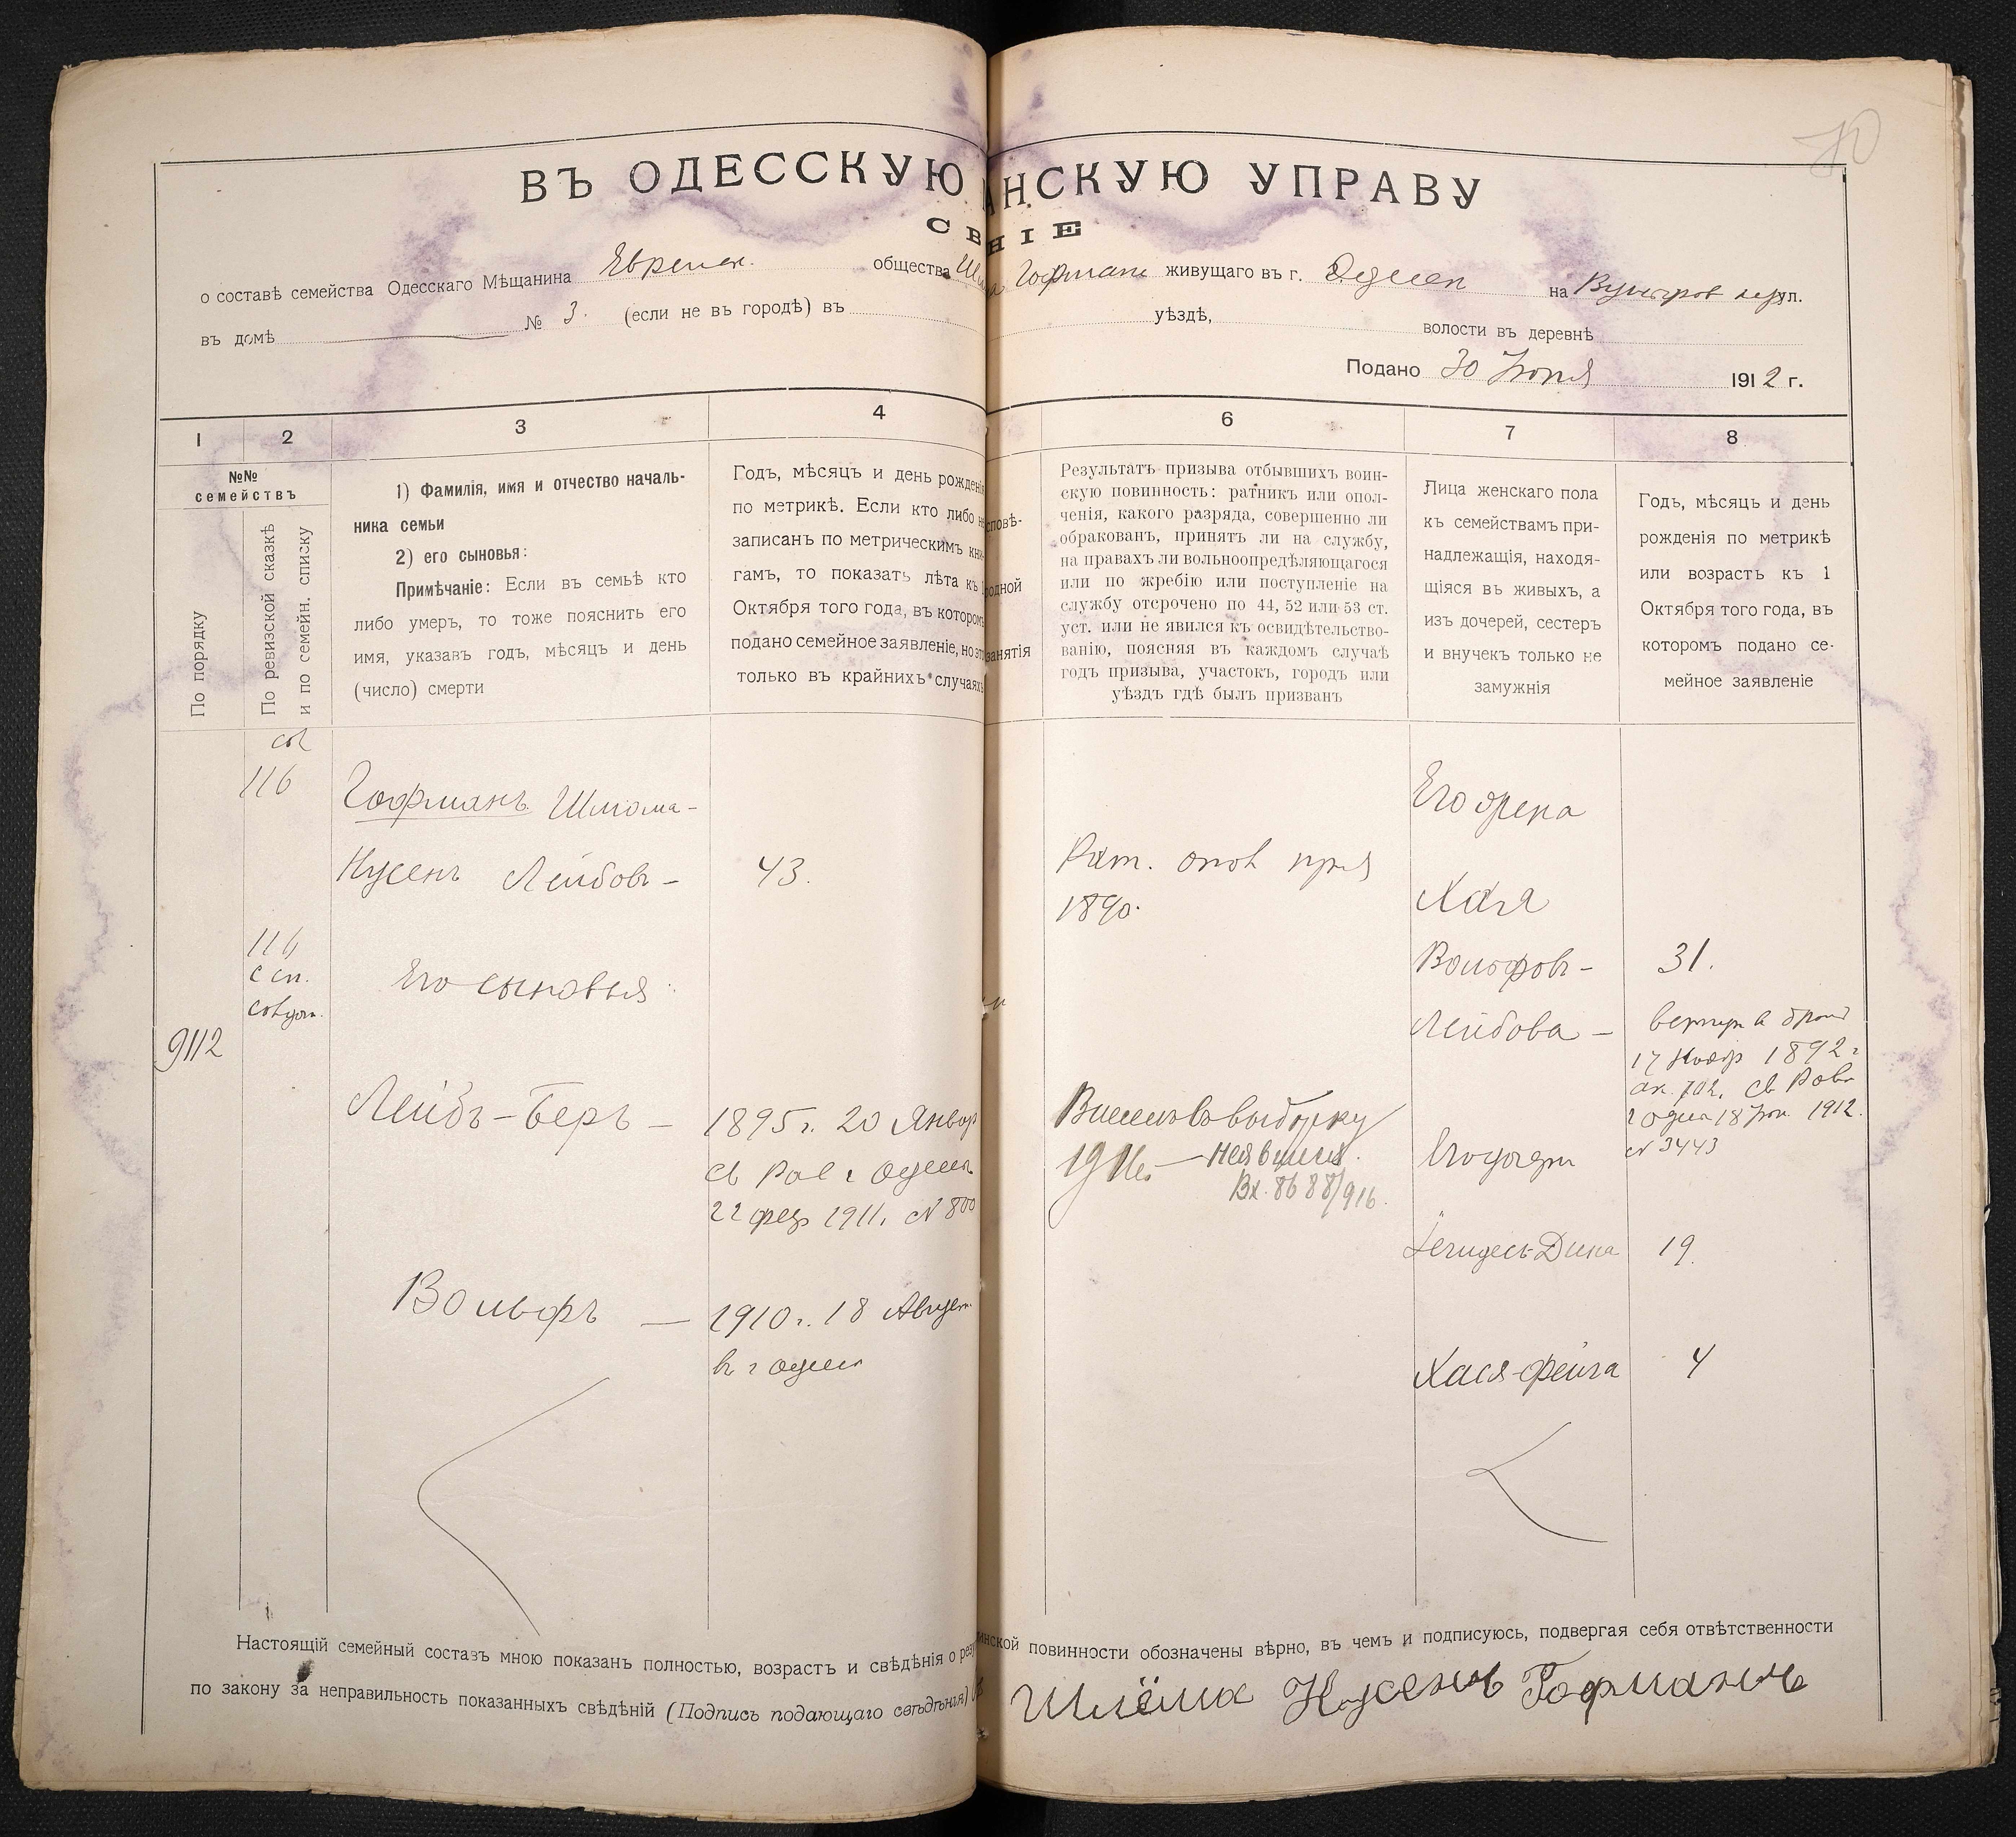 70
ВЪ ОДЕССКУЮ АНСКУЮ УПРАВУ
СВ НІЕ
о составѣ семейства Одесскаго Мѣщанина Еврейск. общества Гофмана живущаго въ г. Одессѣ на ул.
въ домѣ № 3. (если не въ городѣ) въ уѣздѣ, волости въ деревнѣ
Подано 30 1912 г.
1 2 3 4 6 7 8
№№
семействъ
По порядку
По ревизской сказкѣ
и по семейн. списку
1) Фамилія, имя и отчество началь-
ника семьи
2) его сыновья:
Примѣчаніе: Если въ семьѣ кто
либо умеръ, то тоже пояснить его
имя, указавъ годъ, мѣсяцъ и день
(число) смерти
Годъ, мѣсяцъ и день рожденія
по метрикѣ. Если кто либо не
записанъ по метрическимъ кни-
гамъ, то показать лѣта къ 1
Октября того года, въ котором
подано семейное заявленіе, но это
только въ крайнихъ случаяхъ
сповѣ-
одной
занятія
Результатъ призыва отбывшихъ воин-
скую повинность: ратникъ или опол-
ченія, какого разряда, совершенно ли
обракованъ, принятъ ли на службу,
на правахъ ли вольноопредѣляющагося
или по жребію или поступленіе на
службу отсрочено по 44, 52 или 53 ст.
уст. или не явился къ освидѣтельство-
ванію, поясняя въ каждомъ случаѣ
годъ призыва, участокъ, городъ или
уѣздъ гдѣ былъ призванъ
Лица женскаго пола
къ семействамъ при-
надлежащія, находя-
щіяся въ живыхъ, а
изъ дочерей, сестеръ
и внучекъ только не
замужнія
Годъ, мѣсяцъ и день
рожденія по метрикѣ
или возрастъ къ 1
Октября того года, въ
которомъ подано се-
мейное заявленіе
116
Гофманъ Шлиома-
Нусенъ Лейбовъ - 43.
116
с сп.
Его сыновья:
9112
Лейбъ-Беръ - 1895 г. 20 Январ
Рав г Одессы
22 февр 1911. № 800
Вольфъ - 1910 г. 18 Август.
въ г Одессѣ
Рат. опол
1890.
Внесенъ въ выборку
1916 г. - Неявился.
Вх. 8688/916.
Его жена
Хая
Вольфовъ- 31.
Лейбова -
17 Ноябр 1892 г
ак. 702, Рав
г Одессы 18 1912.
№ 3443
Его дочери
Дина 19.
Хася-Фейга 4
Настоящій семейный составъ мною показанъ полностью, возрастъ и свѣдѣнія о резу инской повинности обозначены вѣрно, въ чемъ и подписуюсь, подвергая себя отвѣтственности
по закону за неправильность показанныхъ свѣдѣній (Подпись подающаго свѣдѣнія)
Шлёма Нусенъ Гофманъ